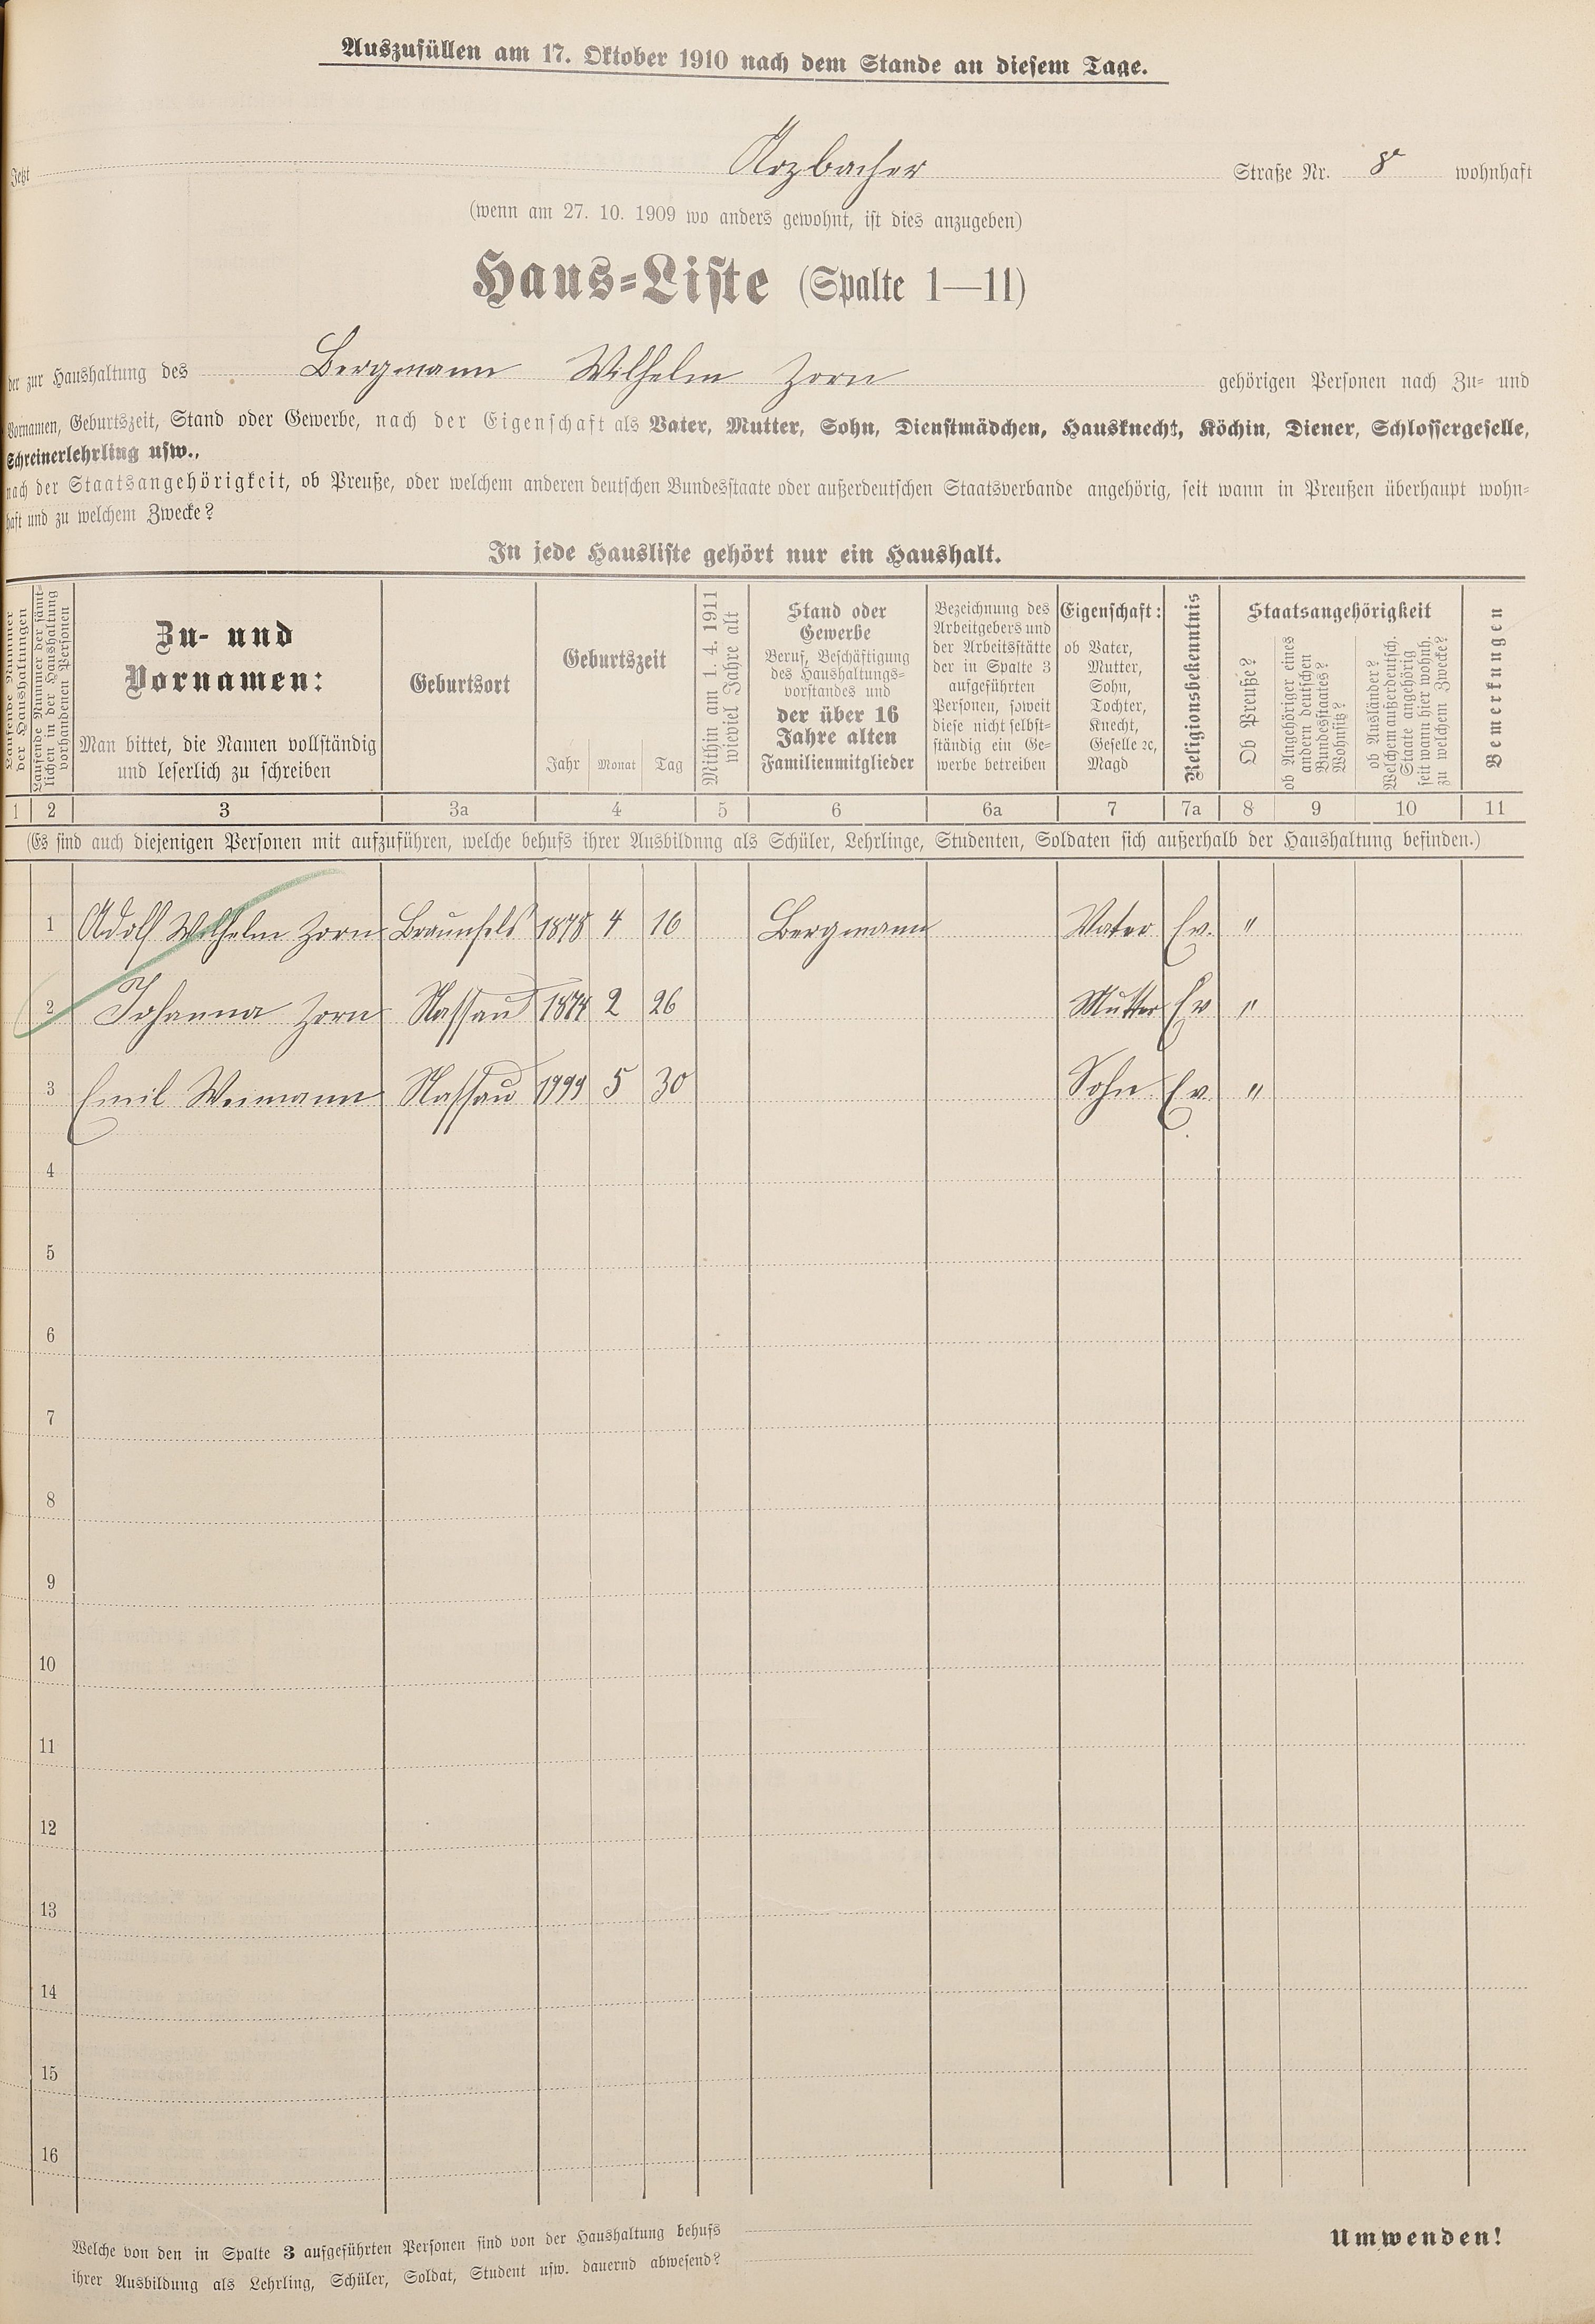 Auszufüllen am 17. Oktober 1910 nach dem Stande an diesem Tage.
Jetzt Arzbacher Straße Nr. 8a wohnhaft
(wenn am 27. 10. 1909 wo anders gewohnt, ist dies anzugeben)
Haus-Liste (Spalte 1—11)
der zur Haushaltung des Bergmann Wilhelm Zorn gehörigen Personen nach Zu- und
Vornamen, Geburtszeit, Stand oder Gewerbe, nach der Eigenschaft als Vater, Mutter, Sohn, Dienstmädchen, Hausknecht, Köchin, Diener, Schlossergeselle,
Schreinerlehrling usw.,
nach der Staatsangehörigkeit, ob Preuße, oder welchem anderen deutschen Bundesstaate oder außerdeutschen Staatsverbande angehörig, seit wann in Preußen überhaupt wohn-
haft und zu welchem Zwecke?
In jede Hausliste gehört nur ein Haushalt.
Laufende Nummer
der Haushaltungen
Laufende Nummer der sämt-
lichen in der Haushaltung
vorhandenen Personen
Zu- und
Vornamen:
Man bittet, die Namen vollständig
und leserlich zu schreiben
Geburtsort
Geburtszeit
Jahr Monat Tag
Mithin am 1. 4. 1911
wieviel Jahre alt
Stand oder
Gewerbe
Beruf, Beschäftigung
des Haushaltungs-
vorstandes und
der über 16
Jahre alten
Familienmitglieder
Bezeichnung des
Arbeitgebers und
der Arbeitsstätte
der in Spalte 3
aufgeführten
Personen, soweit
diese nicht selbst-
ständig ein Ge-
werbe betreiben
Eigenschaft:
ob Vater,
Mutter,
Sohn,
Tochter,
Knecht,
Geselle ꝛc,
Magd
Religionsbekenntnis
Staatsangehörigkeit
Ob Preuße?
ob Angehöriger eines
andern deutschen
Bundesstaates?
Wohnsitz?
ob Ausländer?
Welchem außerdeutsch.
Staate angehörig
seit wann hier wohnh.
zu welchem Zwecke?
Bemerkungen
1 2 3 3a 4 5 6 6a 7 7a 8 9 10 11
(Es sind auch diejenigen Personen mit aufzuführen, welche behufs ihrer Ausbildnng als Schüler, Lehrlinge, Studenten, Soldaten sich außerhalb der Haushaltung befinden.)
1 Adolf Wilhelm Zorn Braunfels 1878 4 16 Bergmann Vater Ev. "
2 Johanna Zorn Nassau 1874 2 26 Mutter Ev "
3 Emil Weimann Nassau 5 30 Sohn Ev. "
4
5
6
7
8
9
10
11
12
13
14
15
16
Welche von den in Spalte 3 aufgeführten Personen sind von der Haushaltung behufs
ihrer Ausbildung als Lehrling, Schüler, Soldat, Student usw. dauernd abwesend?
Umwenden!